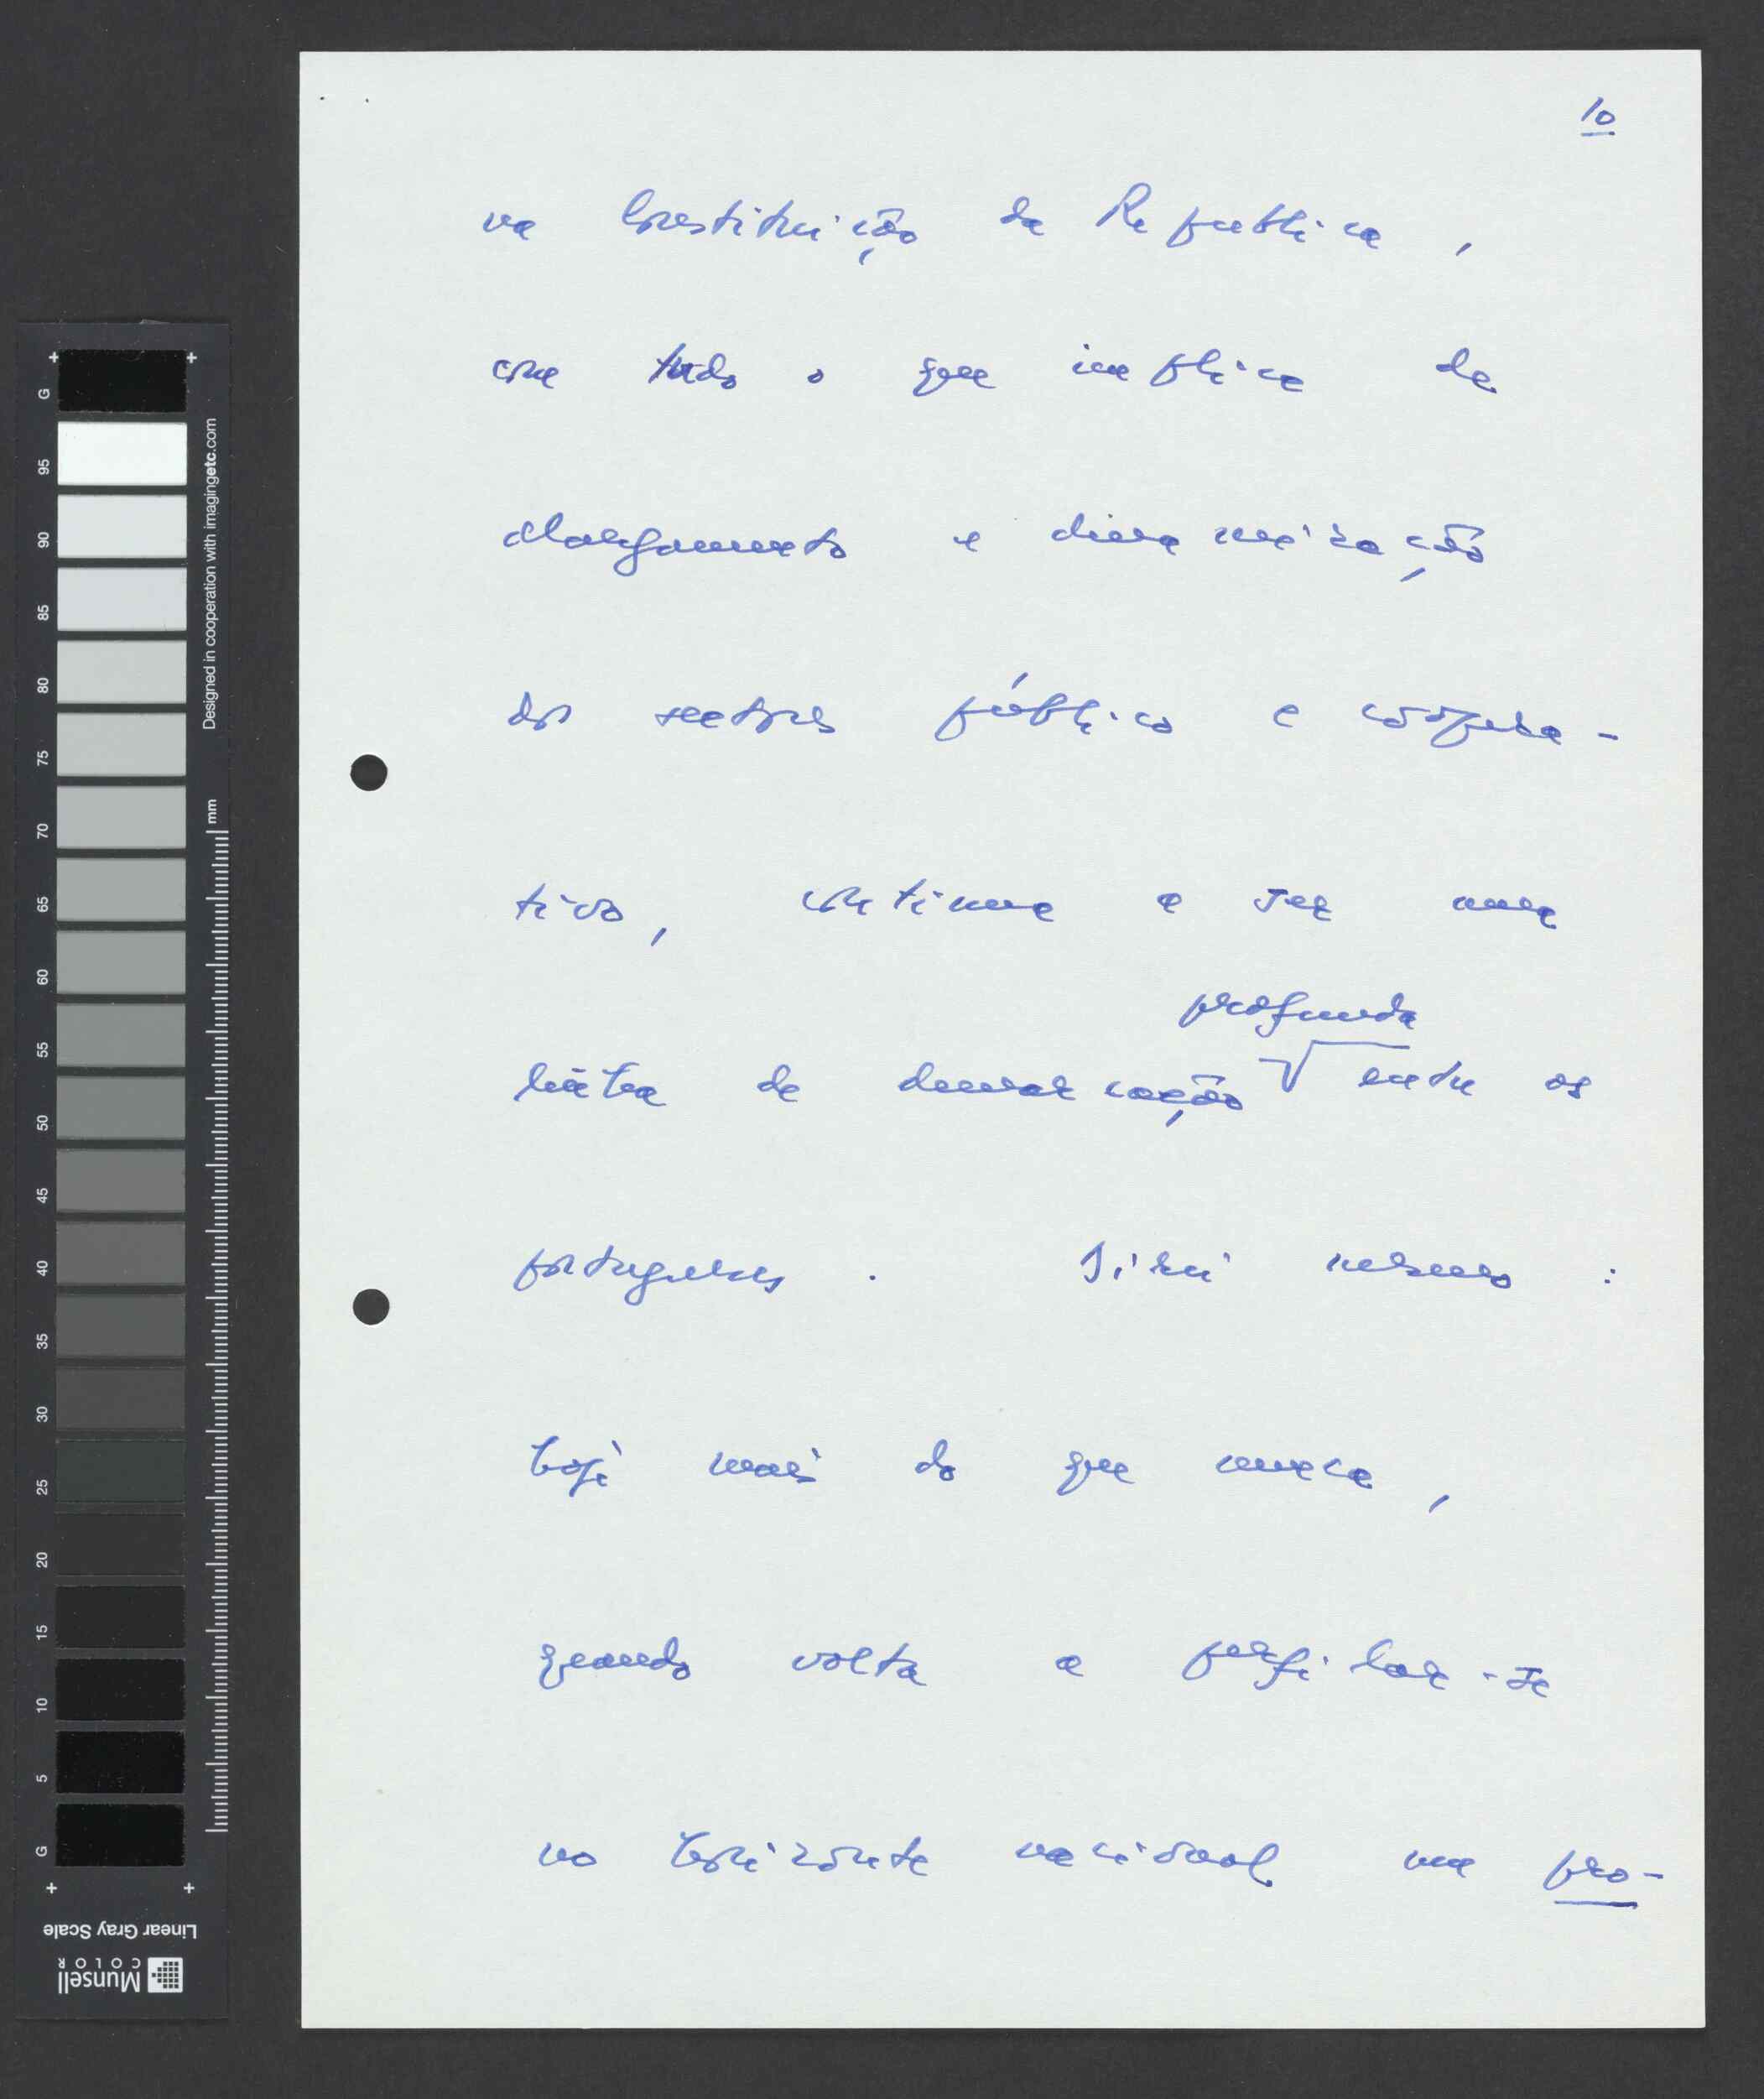 10
na Constituição da Republica,
com tudo o que implica de
alargamento e dinamização
dos sectores público e coopera-
tivo, continua a ser uma
profunda
linha de demarcação √ entre os
portugueses. Sirui mesmo :
hoje mais do que nunca,
quando volta a perfilar-se
no horizonte nacional um pro-
G 95 90 85 80 75 70 65 60 55 50 45 40 35 30 25 20 15 10 5 G
Designed in cooperation with imagingetc.com
mm
Linear Gray Scale
Munsell
COLOR